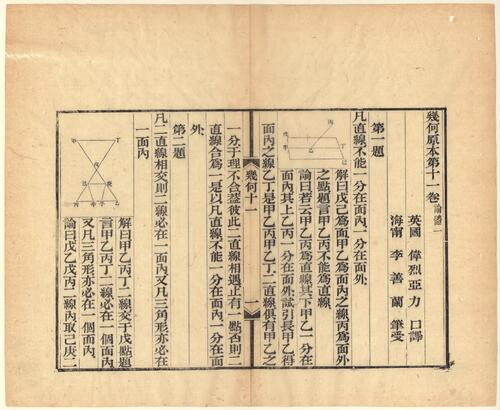 幾何原本第十一卷 論體一
英國 偉烈亞力 口譯
海甯 李善蘭 筆受
第一題
凡直線不能一分在面內一分在面外
解曰戊己爲面甲乙爲面內之線丙爲面外
之點題言甲乙丙不能爲直線
論曰若云甲乙丙爲直線其下甲乙一分在
面內其上乙丙一分在面外試引長甲乙得
面內之線乙丁是甲乙丙甲乙丁二直線俱有甲乙之
丙
乙
幾何十一
一
一分于理不合蓋彼此二直線相遇止有一點否則二
直線合爲一是以凡直線不能一分在面內一分在面
外
第二題
凡二直線相交則二線必在一面內又凡三角形亦必在
一面內
解曰甲乙丙丁二線交于戊點題
言甲乙丙丁二線必在一個面內
又凡三角形亦必在一個面內
論曰戊乙戊丙二線內取己庚二
丁
甲
戊